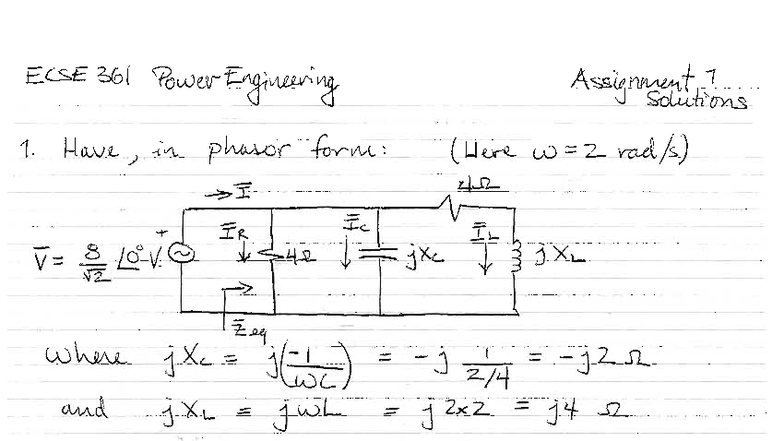 ECSE 361 Power Engineering Assignment 1
Solutions
1. Have, in phasor form: (Here ω = 2 rad/s)
→ I̅
4Ω
V̅ = 8/√2 ∠0° V. + I̅R 4Ω I̅C jXC I̅L jXL
Z̅eq
where jXC = j(-1/ωC) = -j 1/(2/4) = -j2 Ω
and jXL = jωL = j 2×2 = j4 Ω